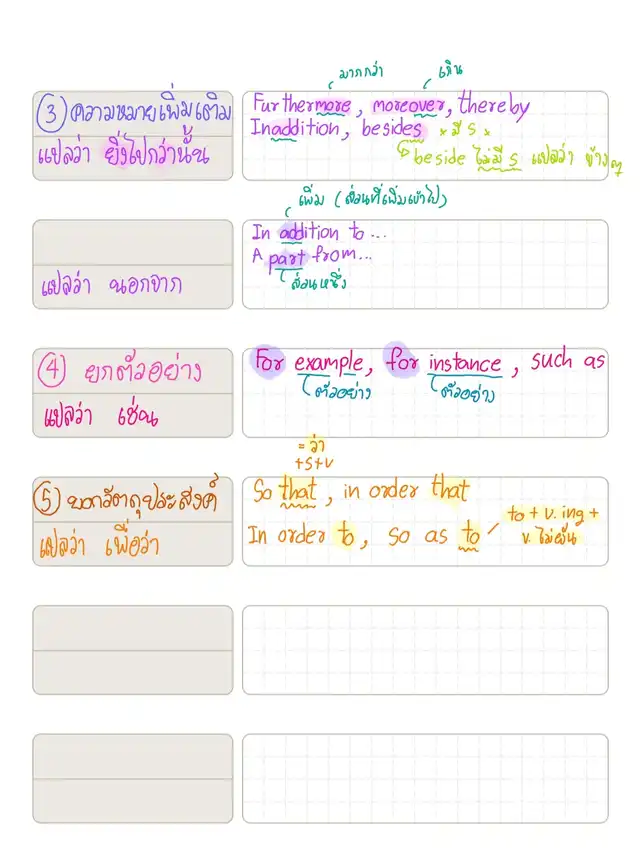 มากกว่า เกิน
③ ความหมายเพิ่มเติม
แปลว่า ยิ่งไปกว่านั้น
Furthermore, moreover, thereby
Inaddition, besides * มี s *
beside ไม่มี s แปลว่า ข้างๆ
เพิ่ม (ส่วนที่เพิ่มเข้าไป)
แปลว่า นอกจาก
In addition to ...
A part from...
ส่วนหนึ่ง
④ ยกตัวอย่าง
แปลว่า เช่น
For example, for instance, such as
ตัวอย่าง ตัวอย่าง
⑤ บอกวัตถุประสงค์
แปลว่า เพื่อว่า
= ว่า
+S+V
So that, in order that
In order to, so as to
to + v. ing +
v. ไม่ผัน